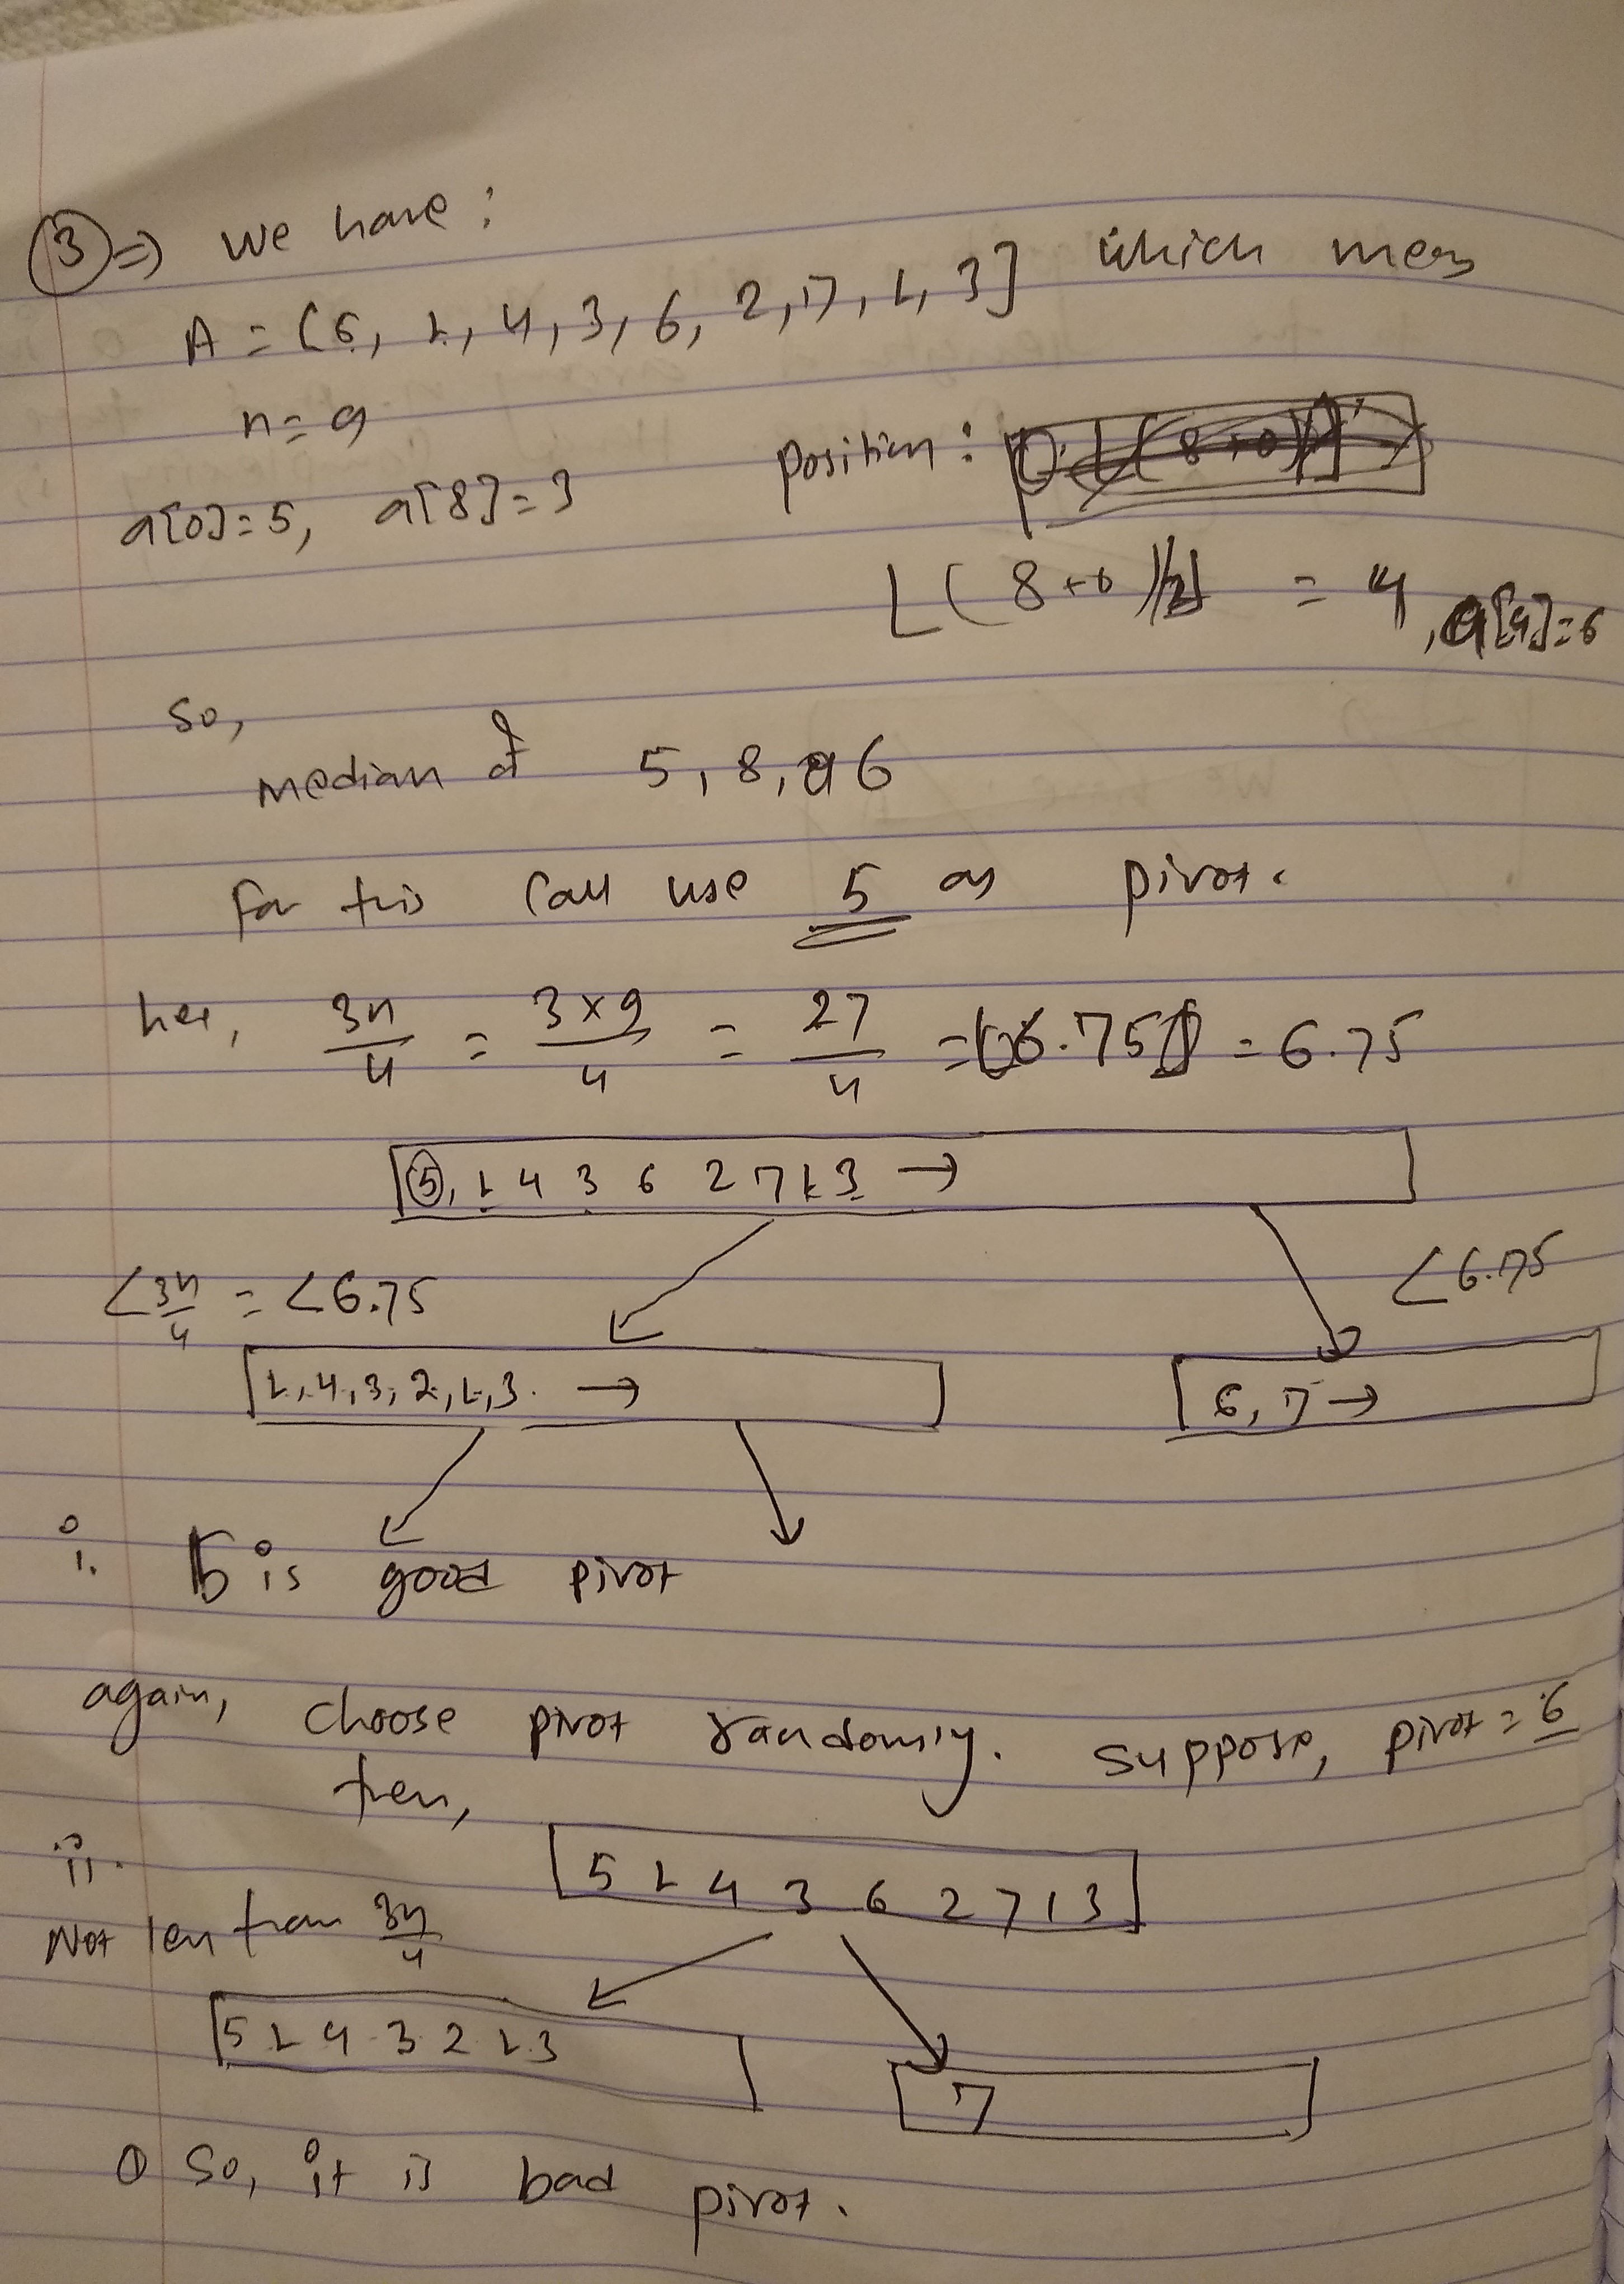 ③ ⇒ We have :
A = [5, 1, 4, 3, 6, 2, 7, 1, 3] which means
n = 9
a[0] = 5, a[8] = 3 position :
⌊(8+0)/2⌋ = 4, a[4] = 6
So,
median of 5, 8, 6
For this call use 5 as pivot.
her, 3n/4 = 3×9/4 = 27/4 = (6.75) = 6.75
5, 1 4 3 6 2 7 1 3 →
< 3n/4 = < 6.75 < 6.75
1, 4, 3, 2, 1, 3. → 6, 7 →
i. 5 is good pivot
again, choose pivot randomly. Suppose, pivot = 6
then,
ii. 5 1 4 3 6 2 7 1 3
Not less than 3n/4
5 1 4 3 2 1 3 7
So, it is bad pivot.